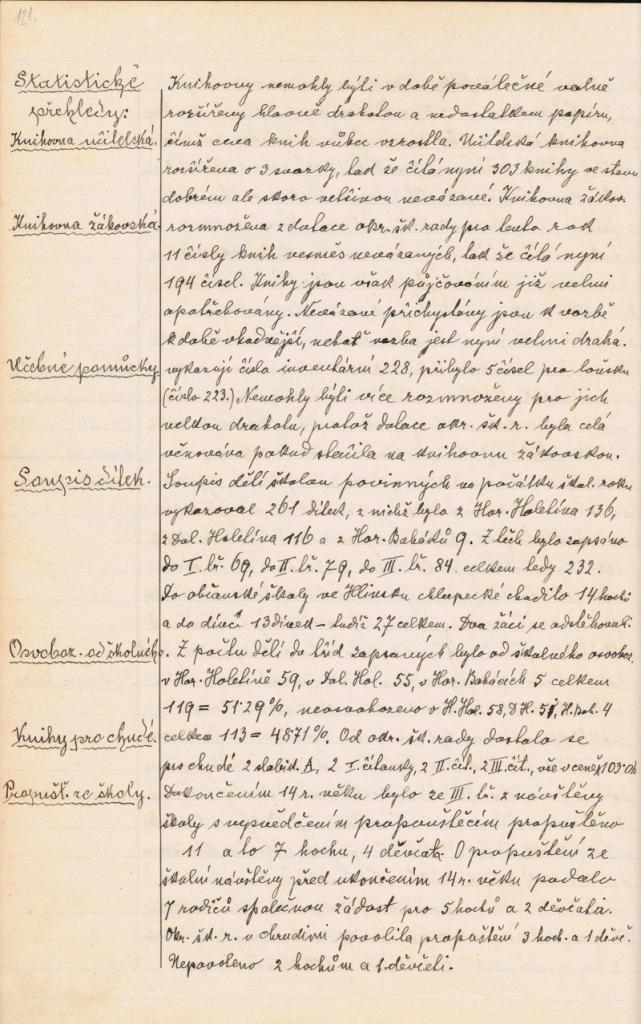 121.
Statistické
přehledy:
Knihovna učitelská.
Knihovna žákovská.
Učebné pomůcky.
Soupis dítek.
Osvoboz. od školného.
Knihy pro chudé.
Propušť. ze školy.
Knihovny nemohly býti v době poválečné valně
rozšířeny hlavně drahotou a nedostatkem papíru,
čímž cena knih vůbec vzrostla. Učitelská knihovna
rozšířena o 3 svazky, tad že čítá nyní 303 knihy ve stavu
dobrém ale skoro většinou nevázané. Knihovna žákov.
rozmnožena z dotace okr. šk. rady pro tento rok
11 čísly knih vesměs nevázaných, tak že čítá nyní
194 čísel. Knihy jsou však půjčováním již velmi
opotřebovány. Nevázané přichystány jsou k vazbě
k době vhodnější, neboť vazba jest nyní velmi drahá.
vykazují číslo inventární 228, přibylo 5 čísel pro loňsku
(číslo 223.) Nemohly býti více rozmnoženy pro jich
velkou drahotu, protož dotace okr. šk. r. byla celá
věnována pokud stačila na knihovnu žákovskou.
Soupis dětí školou povinných na počátku škol. roku
vykazoval 261 dítek, z nichž bylo z Hor. Holetína 136,
z Dol. Holetína 116 a z Hor. Babáků 9. Z těch bylo zapsáno
do I. tř. 69, do II. tř. 79, do III. tř. 84. celkem tedy 232.
Do občanské školy ve Hlinsku chlapecké chodilo 14 hochů
a do dívčí 13 dívek – tudíž 27 celkem. Dva žáci se odstěhovali.
Z počtu dětí do tříd zapsaných bylo od školného osvoboz.
v Hor. Holetíně 59, v Dol. Hol. 55, v Hor. Babácích 5 celkem
119 = 51·29%, neosvobozeno v H. Hol. 58, D H. 51, H. Bab. 4
celkem 113 = 48·71%. Od okr. šk. rady dostalo se
pro chudé 2 slabik. A, 2 I. čítanky, 2 II. čít., 2 III. čít., vše v ceně 103·0h
Dokončením 14 r. věku bylo ze III. tř. z návštěvy
školy s vysvědčením propouštěcím propuštěno
11 a to 7 hochů, 4 děvčata. O propuštění ze
školní návštěvy před ukončením 14 r. věku podalo
7 rodičů společnou žádost pro 5 hochů a 2 děvčata.
Okr. šk. r. v Chrudimi povolila propuštění 3 hoch. a 1 děvč.
Nepovoleno 2 hochům a 1 děvčeti.